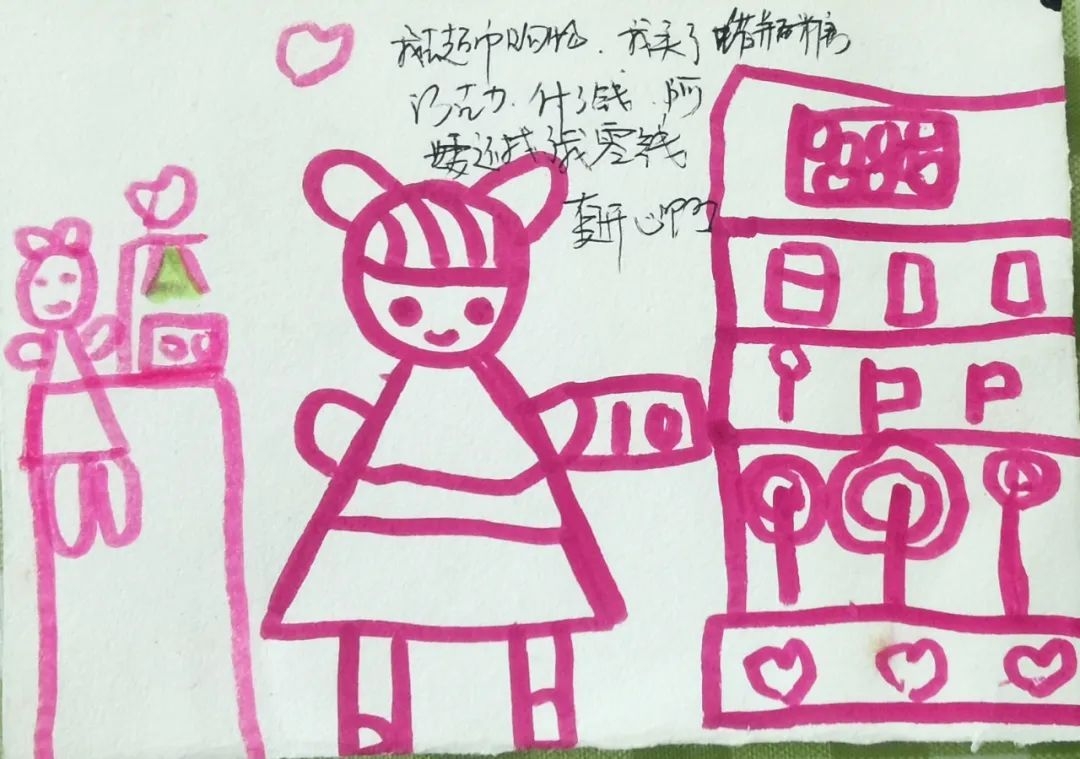 我去超市购物，我买了蜡瓶糖
巧克力，付了钱，阿
姨还找我零钱
真开心啊
10